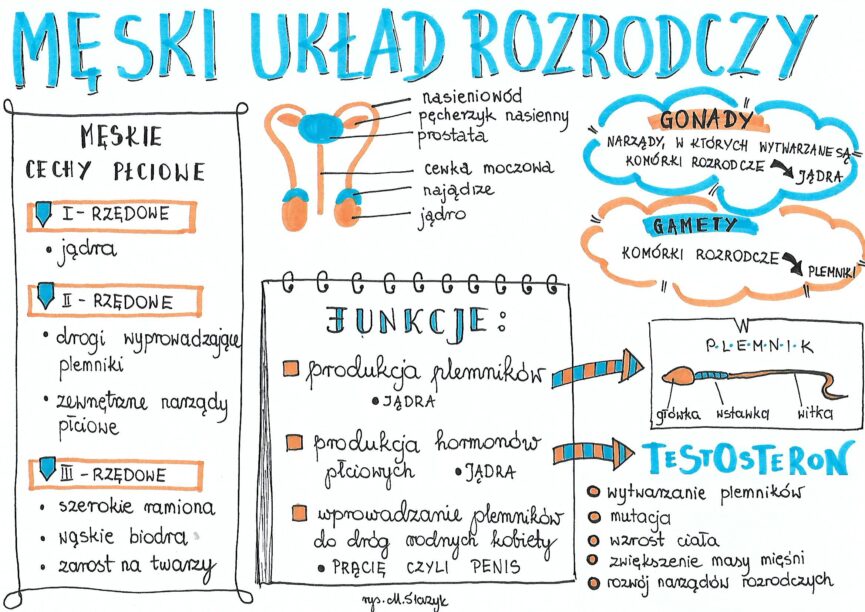 MĘSKI UKŁAD ROZRODCZY
MĘSKIE
CECHY PŁCIOWE
I - RZĘDOWE
• jądra
II - RZĘDOWE
• drogi wyprowadzające
plemniki
• zewnętrzne narządy
płciowe
III - RZĘDOWE
• szerokie ramiona
• wąskie biodra
• zarost na twarzy
nasieniowód
pęcherzyk nasienny
prostata
cewka moczowa
najądrze
jądro
GONADY
NARZĄDY, W KTÓRYCH WYTWARZANE SĄ
KOMÓRKI ROZRODCZE
JĄDRA
GAMETY
KOMÓRKI ROZRODCZE
PLEMNIKI
FUNKCJE:
produkcja plemników
• JĄDRA
produkcja hormonów
płciowych • JĄDRA
wprowadzanie plemników
do dróg rodnych kobiety
• PRĄCIE CZYLI PENIS
P•L•E•M•N•I•K
główka wstawka witka
TESTOSTERON
wytwarzanie plemników
mutacja
wzrost ciała
zwiększenie masy mięśni
rozwój narządów rozrodczych
rys. M. Ślazyk